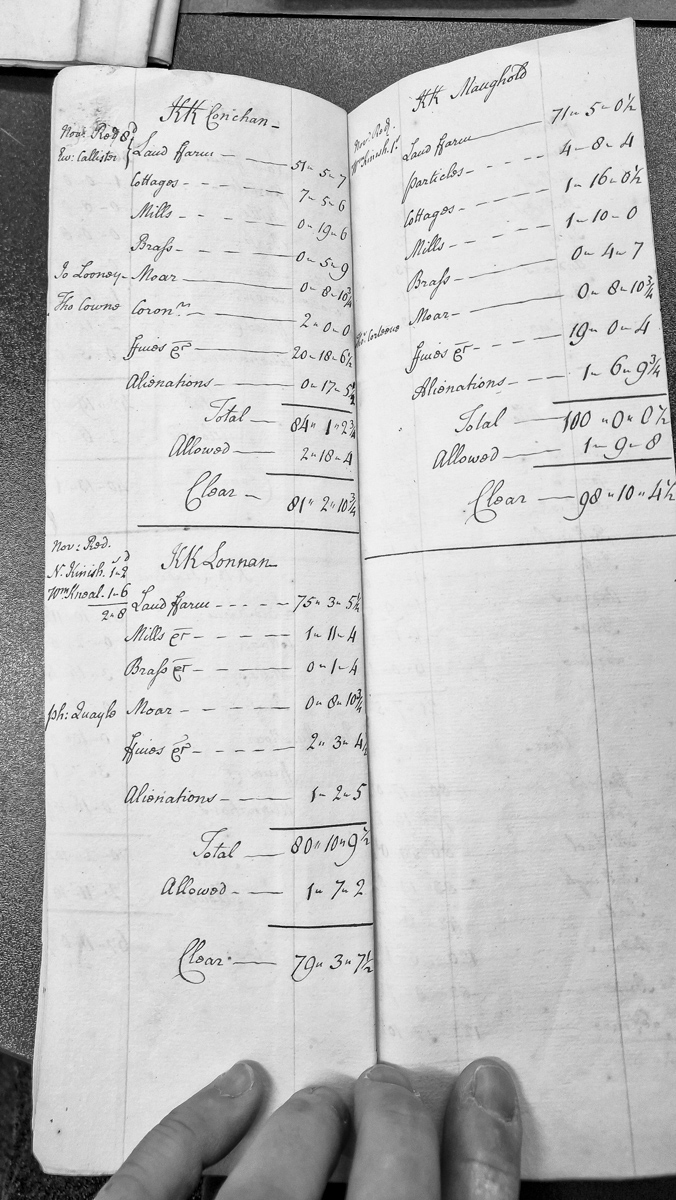 KK Conchan
Nov: Red 8d
Ew: Callister
Land ffarm 51 - 5 - 7
Cottages 7 - 5 - 6
Mills 0 - 19 - 6
Brass 0 - 5 - 9
Jo Looney Moar 0 - 8 - 10 3/4
Tho Cowne Coronrs 2 - 0 - 0
ffines &c 20 - 18 - 6 1/2
Alienations 0 - 17 - 5 1/2
Total 84 " 1 " 2 3/4
Allowed 2 - 18 - 4
Clear 81 " 2 " 10 3/4
Nov: Red.
N. Kinish. 1 - 2
Wm Kneal. 1 - 6
2 - 8
KK Lonnan
Land ffarm 75 - 3 - 5 1/2
Mills &c 1 - 11 - 4
Brass &c 0 - 1 - 4
Jph: Quayle Moar 0 - 8 - 10 3/4
ffines &c 2 " 3 - 4 1/2
Alienations 1 - 2 - 5
Total 80 " 10 " 9 1/2
Allowed 1 - 7 - 2
Clear 79 " 3 " 7 1/2
KK Maughold
Nov: Red.
Wm Kinish. 1s
Land ffarm 71 - 5 - 0 1/2
Particles 4 - 8 - 4
Cottages 1 - 16 - 0 1/2
Mills 1 - 10 - 0
Brass 0 - 4 - 7
Moar 0 - 8 - 10 3/4
ffines &c 19 - 0 - 4
Alienations 1 - 6 - 9 3/4
Total 100 " 0 " 0 1/2
Allowed 1 - 9 - 8
Clear 98 " 10 " 4 1/2